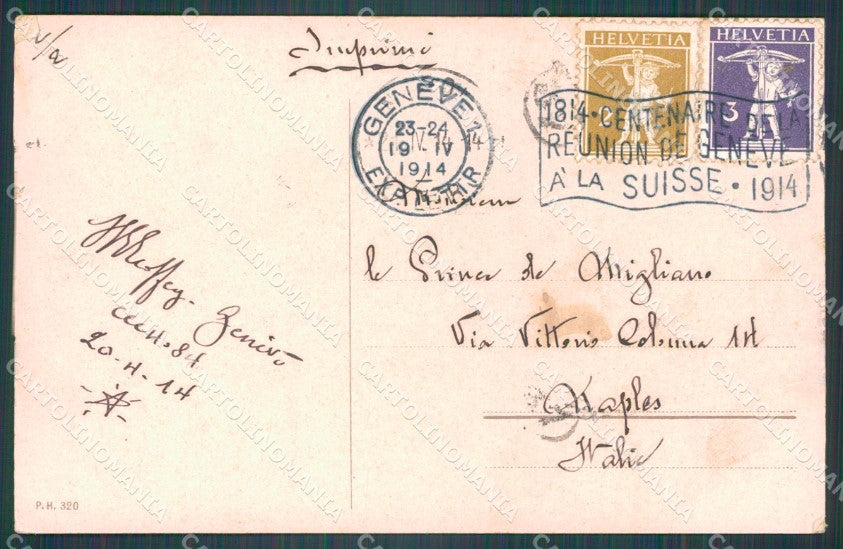 v/a
Imprimé
HELVETIA
HELVETIA
2
3
GENÈVE 1
23-24
19 IV
1914
EXP. LETTR
1814 · CENTENAIRE DE LA
RÉUNION DE GENÈVE
À LA SUISSE · 1914
Monsieur
le Prince de Migliano
Via Vittorio Colonna 14
Naples
Italie
Genève
20-4-14
P.H. 320
CARTOLINOMANIA